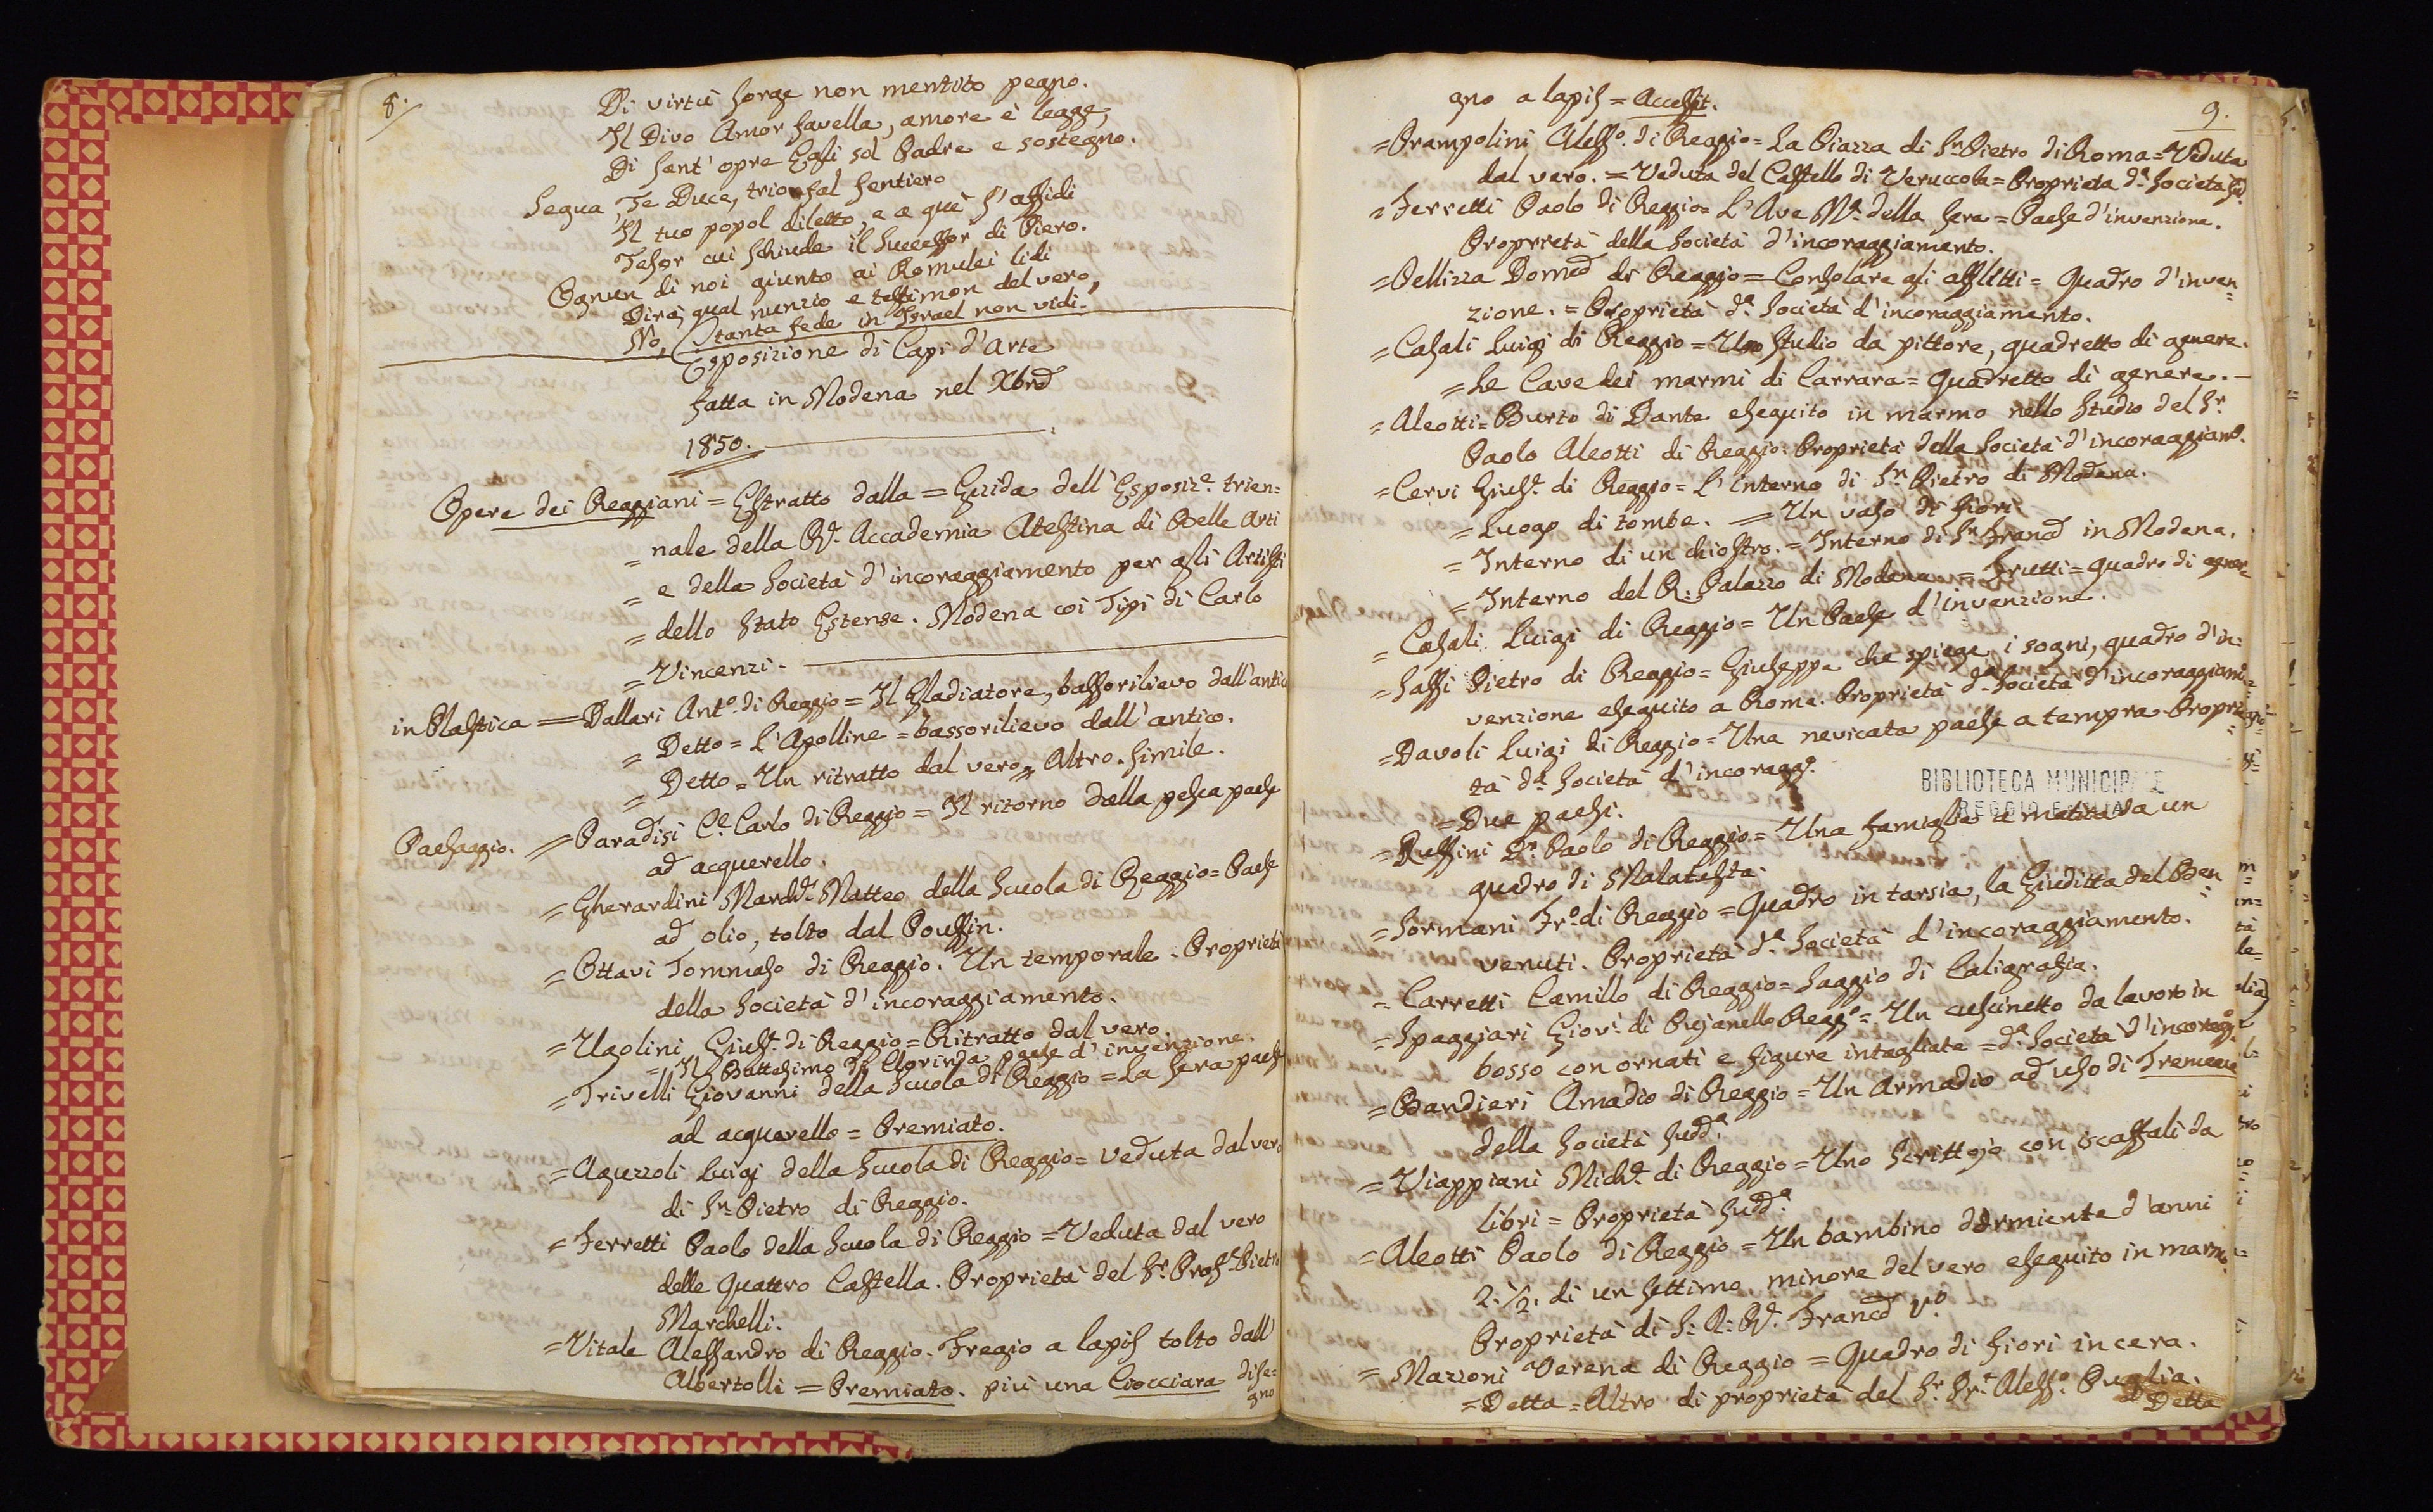 8.
Di virtù sorge non mentito pegno.
Il Divo Amor favella, amore è legge,
Di sant' opre Egli sol Padre e sostegno.
Segua, Te Duce, trionfal sentiero
Il tuo popol diletto, e a què s' affidi
Tesor cui schiude il Successor di Piero.
Ognun di noi giunto ai Romulei lidi
Dirà, qual nunzio e testimon del vero,
No, tanta fede in Israel non vidi.
Esposizione di Capi d'Arte
fatta in Modena nel Xbre
1850.
Opere dei Reggiani = Estratto dalla = Guida dell' Esposize. trien=
= nale della Re. Accademia Atestina di Belle Arti
= e della Società d'incoraggiamento per gli Artisti
= dello Stato Estense. Modena coi Tipi di Carlo
= Vincenzi.
in Plastica = Dallari Anto. di Reggio = Il Gladiatore, bassorilievo dall'antico
= Detto = L'Apolline = bassorilievo dall'antico.
= Detto = Un ritratto dal vero = Altro simile.
Paesaggio. = Paradisi Ce. Carlo di Reggio = Il ritorno dalla pesca paese
ad acquerello.
= Gherardini March. Matteo della Scuola di Reggio = Paese
ad olio, tolto dal Poussin.
= Ottavi Tommaso di Reggio. Un temporale. Proprietà
della Società d'incoraggiamento.
= Ugolini Giuse. di Reggio = Ritratto dal vero.
= Il Battesimo di Clorinda paese d'invenzione.
= Trivelli Giovanni della Scuola di Reggio = La Sera paese
ad acquerello = Premiato.
= Aguzzoli Luigi della Scuola di Reggio = veduta dal vero
di Sn. Pietro di Reggio.
= Ferretti Paolo della Scuola di Reggio = Veduta dal vero
delle quattro Castella. Proprietà del Sr. Profe. Pietro
Marchelli.
= Vitale Alessandro di Reggio. Fregio a lapis tolto dall'
Albertolli = Premiato. più una Ciocciara dise=
gno
9.
gno a lapis = Accessit.
= Prampolini Alesso. di Reggio = La Piazza di Sn. Pietro di Roma = Veduta
dal vero. = Veduta del Castello di Veruccola = Proprietà da. Società sud.
= Ferretti Paolo di Reggio = L'Ave Ma. della Sera = Paese d'invenzione.
Proprietà della Società d'incoraggiamento.
= Pellizza Domco di Reggio = Consolare gli afflitti = Quadro d'inven=
zione. = Proprietà da. Società d'incoraggiamento.
= Casali Luigi di Reggio = Uno Studio da pittore, quadretto di genere.
= Le Cave dei marmi di Carrara = Quadretto di genere. —
= Aleotti = Busto di Dante eseguito in marmo nello Studio del Sr.
Paolo Aleotti di Reggio. Proprietà della Società d'incoraggiamo.
= Cervi Giuse. di Reggio = L'interno di Sn. Pietro di Modena.
= Luogo di tombe. = Un vaso di fiori
= Interno di un chiostro. = Interno di Sn. Franco in Modena.
= Interno del R. Palazzo di Modena = Frutti = quadro di gener=
= Casali Luigi di Reggio = Un Paese d'invenzione.
= Saffi Pietro di Reggio = Giuseppe che spiega i sogni, quadro d'in=
venzione eseguito a Roma. Proprietà da. Società d'incoraggiam=
= Davoli Luigi di Reggio = Una nevicata paese a tempra. Proprie=
tà da. Società d'incoraggo.
= Due paesi.
BIBLIOTECA MUNICIPALE
REGGIO EMILIA
= Ruffini Dr. Paolo di Reggio = Una famiglia a matita da un
quadro di Malatesta.
= Sormani Fro. di Reggio = Quadro in tarsia, la Giuditta del Ben=
venuti. Proprietà da. Società d'incoraggiamento.
= Carretti Camillo di Reggio = Saggio di Caligrafia.
= Spaggiari Giovi. di Rejanello Reggo = Un cuscinetto da lavoro in
bosso con ornati e figure intagliate = da. Società d'incoragg.
= Bandieri Amadio di Reggio = Un Armadio ad uso di
della Società sudda.
= Viappiani Miche. di Reggio = Uno scrittojo con iscaffali da
libri = Proprietà sudda.
= Aleotti Paolo di Reggio = Un bambino dormiente d'anni
2. 1/2. di un settimo minore del vero eseguito in marmo.
Proprietà di S. A. R. Franco Vo.
= Mazzoni Verena di Reggio = Quadro di fiori in cera.
= Detta = Altro di proprietà del Sr. Alesso. Puglia.
Detta